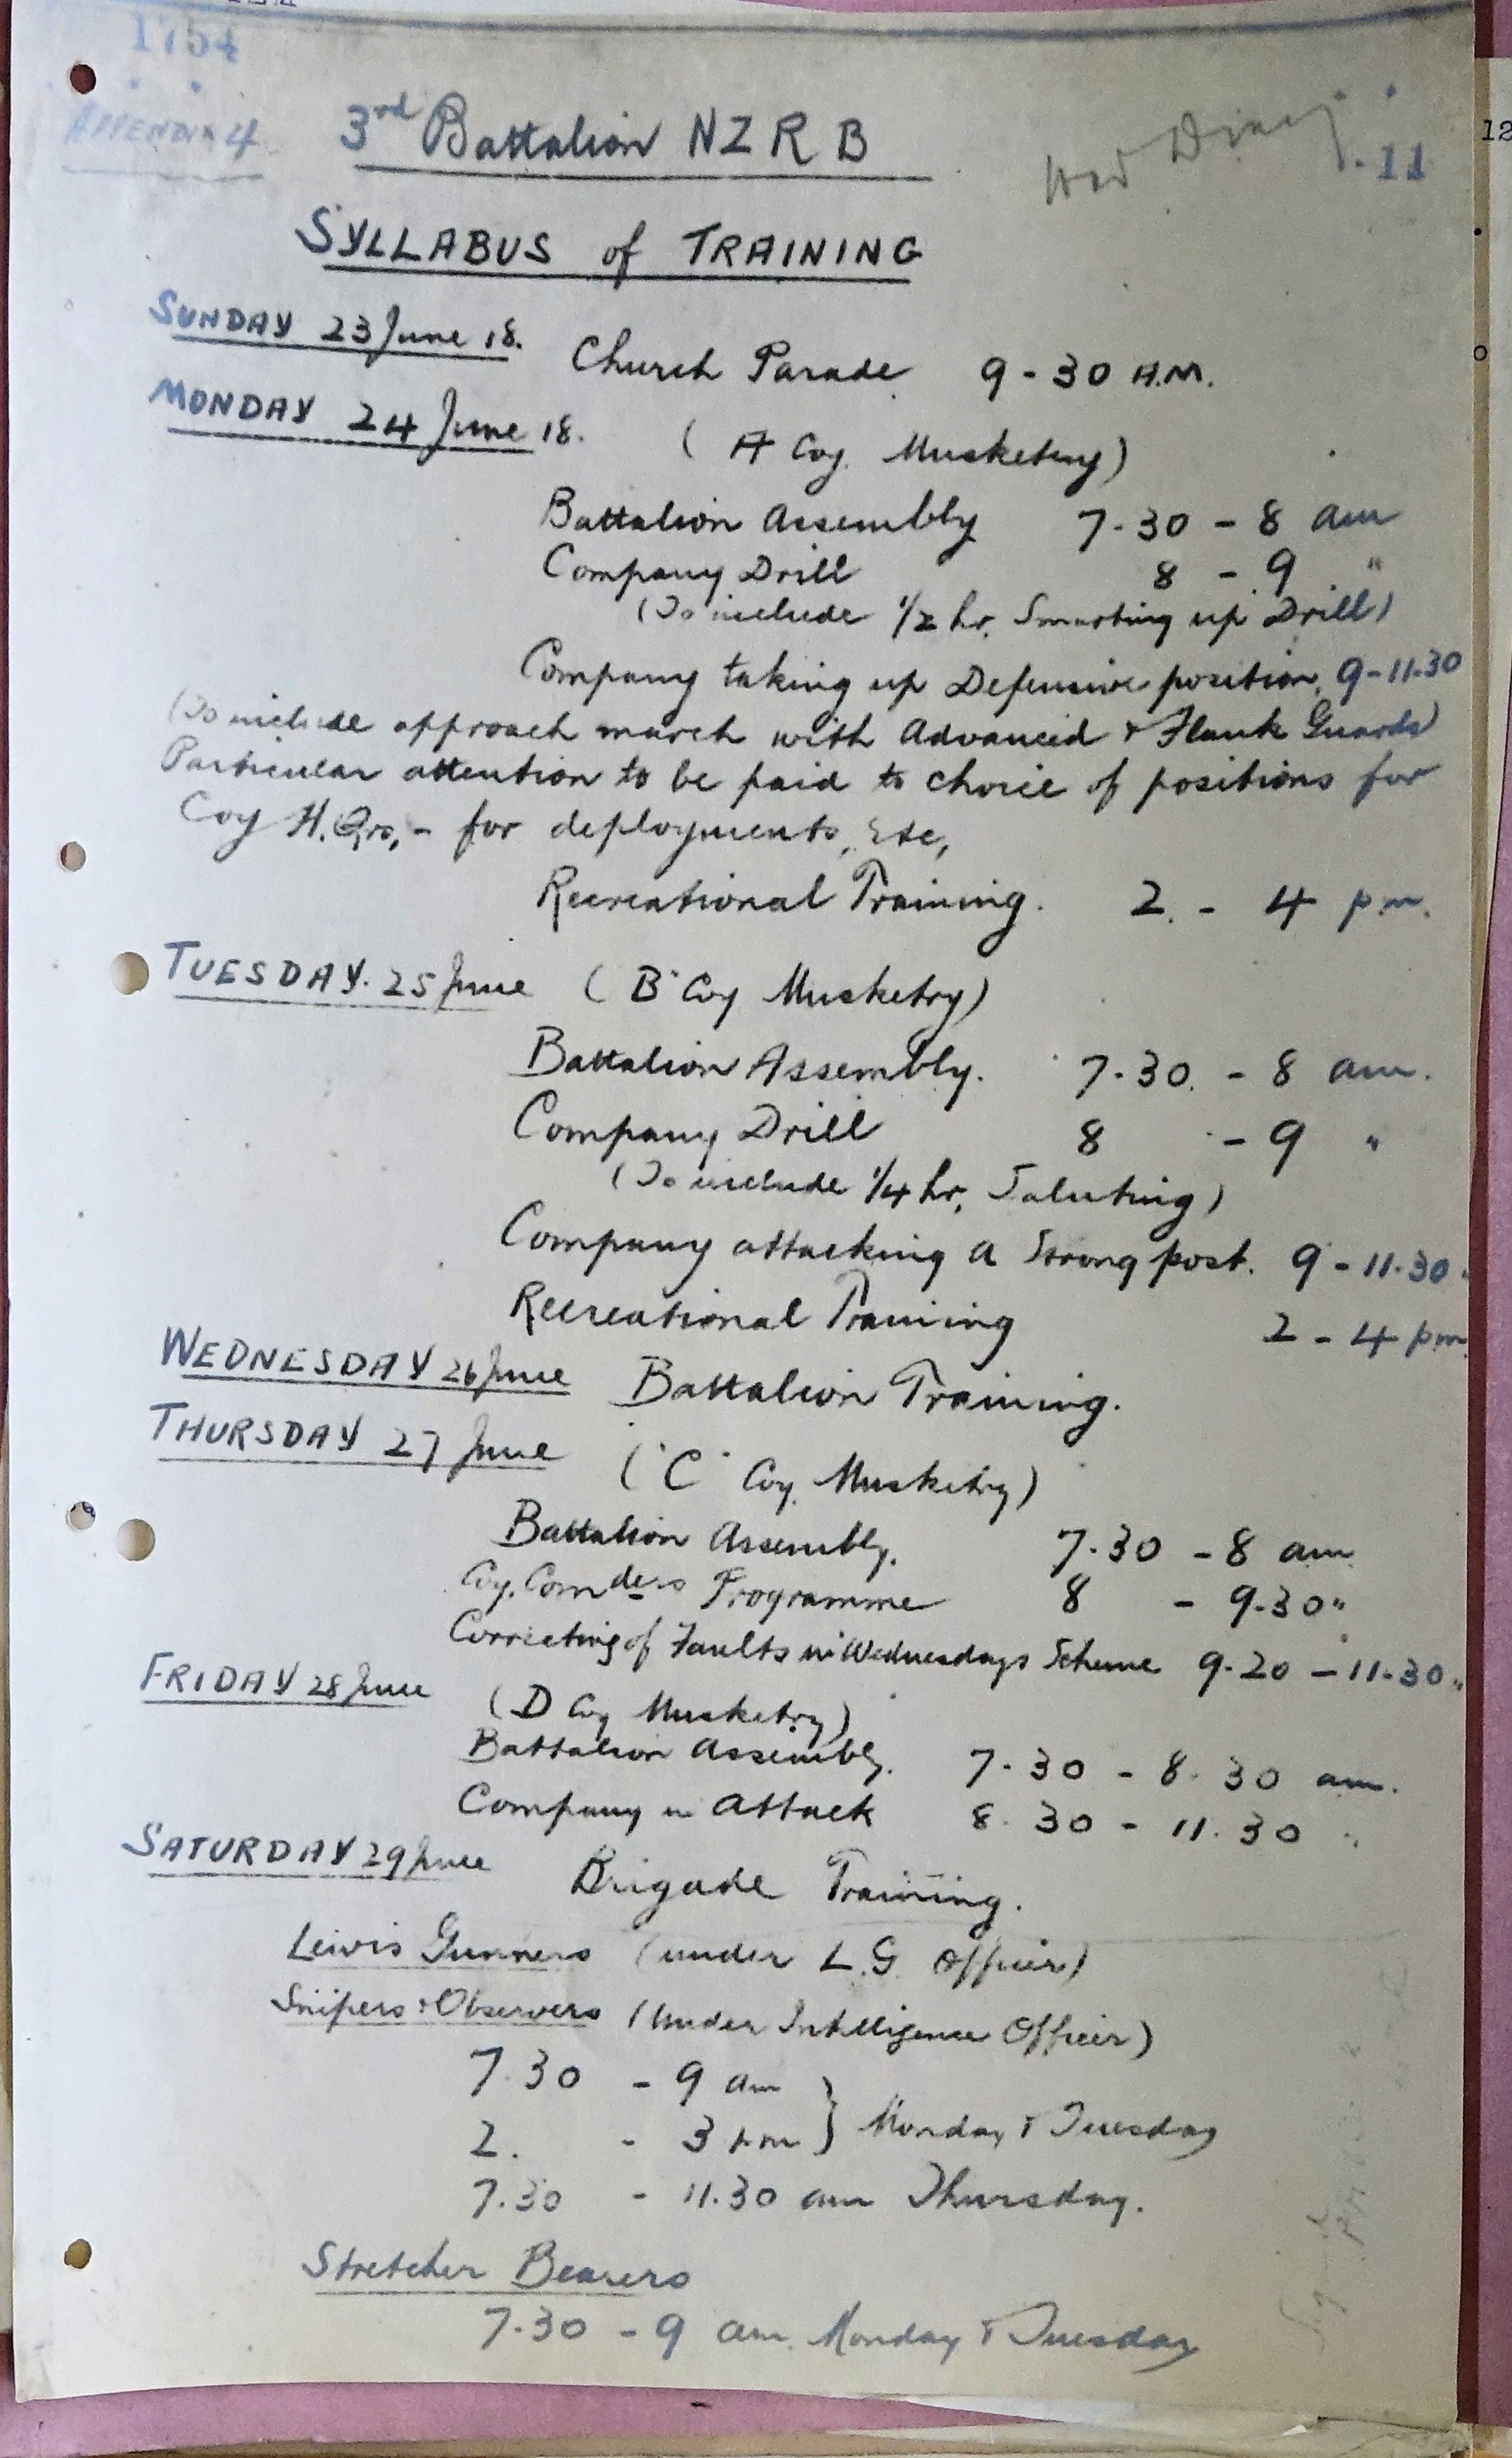 1754
APPENDIX 4
3rd Battalion NZRB
War Diary
11
12
SYLLABUS of TRAINING
SUNDAY 23 June 18.
Church Parade 9-30 A.M.
MONDAY 24 June 18.
(A Coy. Musketry)
Battalion Assembly 7.30 - 8 am
Company Drill 8 - 9 "
(To include 1/2 hr. Smarting up Drill)
Company taking up Defensive position. 9-11.30
(To include approach march with Advanced & Flank Guards)
Particular attention to be paid to choice of positions for
Coy H.Qrs, - for deployments, Etc,
Recreational Training. 2. - 4 pm.
TUESDAY. 25 June ("B" Coy Musketry)
Battalion Assembly. 7.30. - 8 am.
Company Drill 8 - 9 "
(To include 1/4 hr, Saluting)
Company attacking a Strong post. 9 - 11.30 "
Recreational Training 2 - 4 pm
WEDNESDAY 26 June Battalion Training.
THURSDAY 27 June ("C" Coy. Musketry)
Battalion Assembly. 7.30 - 8 am
Coy. Comders Programme 8 - 9.30 "
Correcting of Faults in Wednesdays Scheme 9.20 - 11.30 "
FRIDAY 28 June (D Coy Musketry)
Battalion Assembly. 7.30 - 8.30 am.
Company in Attack 8.30 - 11.30 "
SATURDAY 29 June Brigade Training.
Lewis Gunners (under L.G. Officer)
Snipers & Observers (Under Intelligence Officer)
7.30 - 9 am
2. - 3 pm } Monday & Tuesday
7.30 - 11.30 am Thursday.
Stretcher Bearers
7.30 - 9 am. Monday & Tuesday